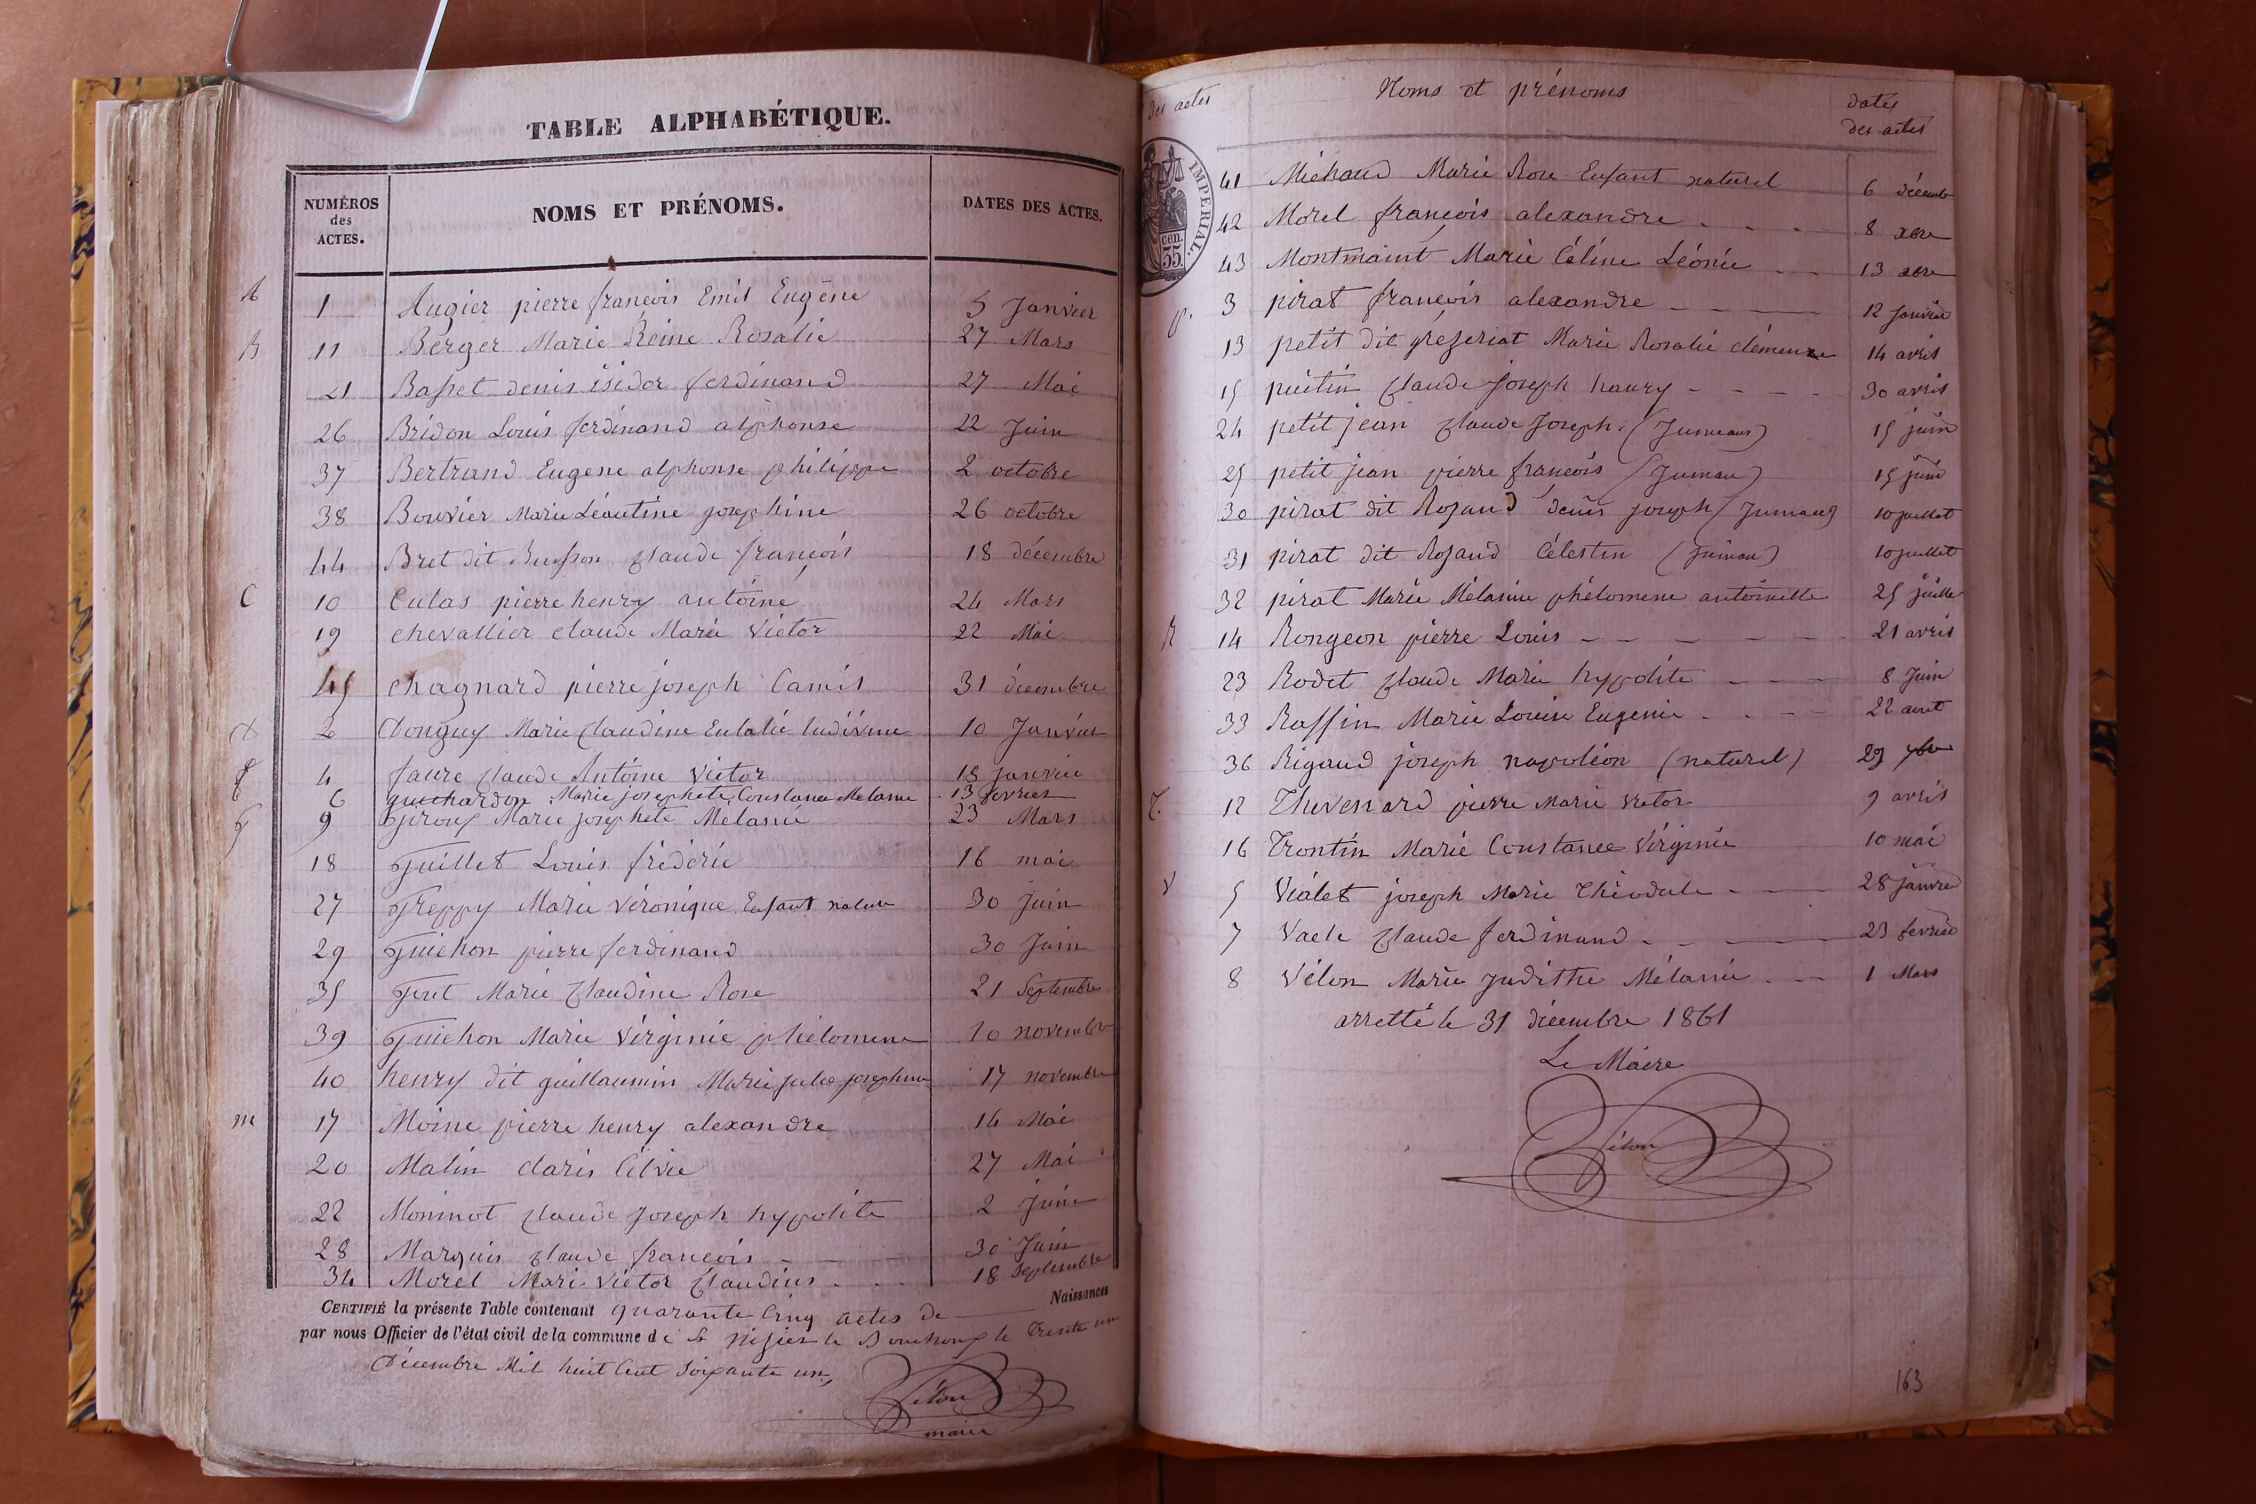 TABLE ALPHABÉTIQUE.
NUMÉROS des ACTES. NOMS ET PRÉNOMS. DATES DES ACTES.
A 1 Augier pierre francois Emil Eugène 5 Janvier
B 11 Berger Marie Reine Rosalie 27 Mars
21 Basset denis isidor ferdinand 27 Mai
26 Bridon Louis ferdinand alphonse 22 Juin
37 Bertrand Eugene alphonse philippe 2 octobre
38 Bouvier Marie Léontine josephine 26 octobre
44 Bret dit Buisson Claude francois 18 décembre
C 10 Culas pierre henry antoine 24 Mars
19 chevallier claude Marie Victor 22 Mai
45 chagnard pierre joseph Camil 31 décembre
D 2 Donguy Marie Claudine Eulalie 10 Janvier
f 4 faure Claude Antoine Victor 18 janvier
6 guichardon Marie josephete Constance Melanie 13 fevrier
G 9 Giroux Marie josephete Melanie 23 Mars
18 Guillet Louis frédéric 16 mai
27 Greppy Marie Véronique Enfant nature 30 juin
29 Guichon pierre ferdinand 30 Juin
35 Marie Claudine Rose 21 Septembre
39 Guichon Marie Virginie phelomene 10 novembre
40 henry dit guillaumin Marie Julie josephine 17 novembre
m 17 Moine pierre henry alexandre 14 Mai
20 Matin claris Cilvie 27 Mai
22 Moninot Claude Joseph hypolite 2 juin
28 Marquis Claude francois 30 Juin
34 Morel Marie Victor Claudius 18 Septembre
CERTIFIÉ la présente Table contenant quarante Cinq actes de Naissances
par nous Officier de l'état civil de la commune de St Nizier le Bouchoux le Trente un
Décembre Mil huit Cent Soixante un,
Vélon
maire
des actes Noms et prénoms dates des actes
IMPERIAL.
cen. 35.
41 Michaud Marie Rose Enfant naturel 6 décembre
42 Morel francois alexandre 8 xbre
43 Montmaint Marie Céline Léonie 13 xbre
p. 3 pirat francois alexandre 12 Janvier
13 petit dit grezeriat Marie Rosalie clémence 14 avril
15 Claude Joseph henry 30 avril
24 petit jean Claude Joseph (Jumeaux) 15 juin
25 petit jean pierre francois (Jumeau) 15 juin
30 pirat dit Rozand Denis joseph (Jumeau) 10 juillet
31 pirat dit Rozand Célestin (jumeau) 10 juillet
32 pirat Marie Mélanie phélomene antoinette 25 juille
R 14 Rongeon pierre Louis 21 avril
23 Rodet Claude Marie hypolite 8 Juin
33 Raffin Marie Louise Eugenie 22 aout
36 Rigaud joseph napoléon (naturel) 29 7bre
T. 12 Thuvenard pierre Marie Victor 9 avril
16 Trontin Marie Constance Virginie 10 mai
V 5 Vialet joseph Marie Théodule 28 janvier
7 Vaele Claude ferdinand 23 fevrier
8 Vélon Marie Judithe Mélanie 1 Mars
arretté le 31 décembre 1861
Le Maire
Vélon
163